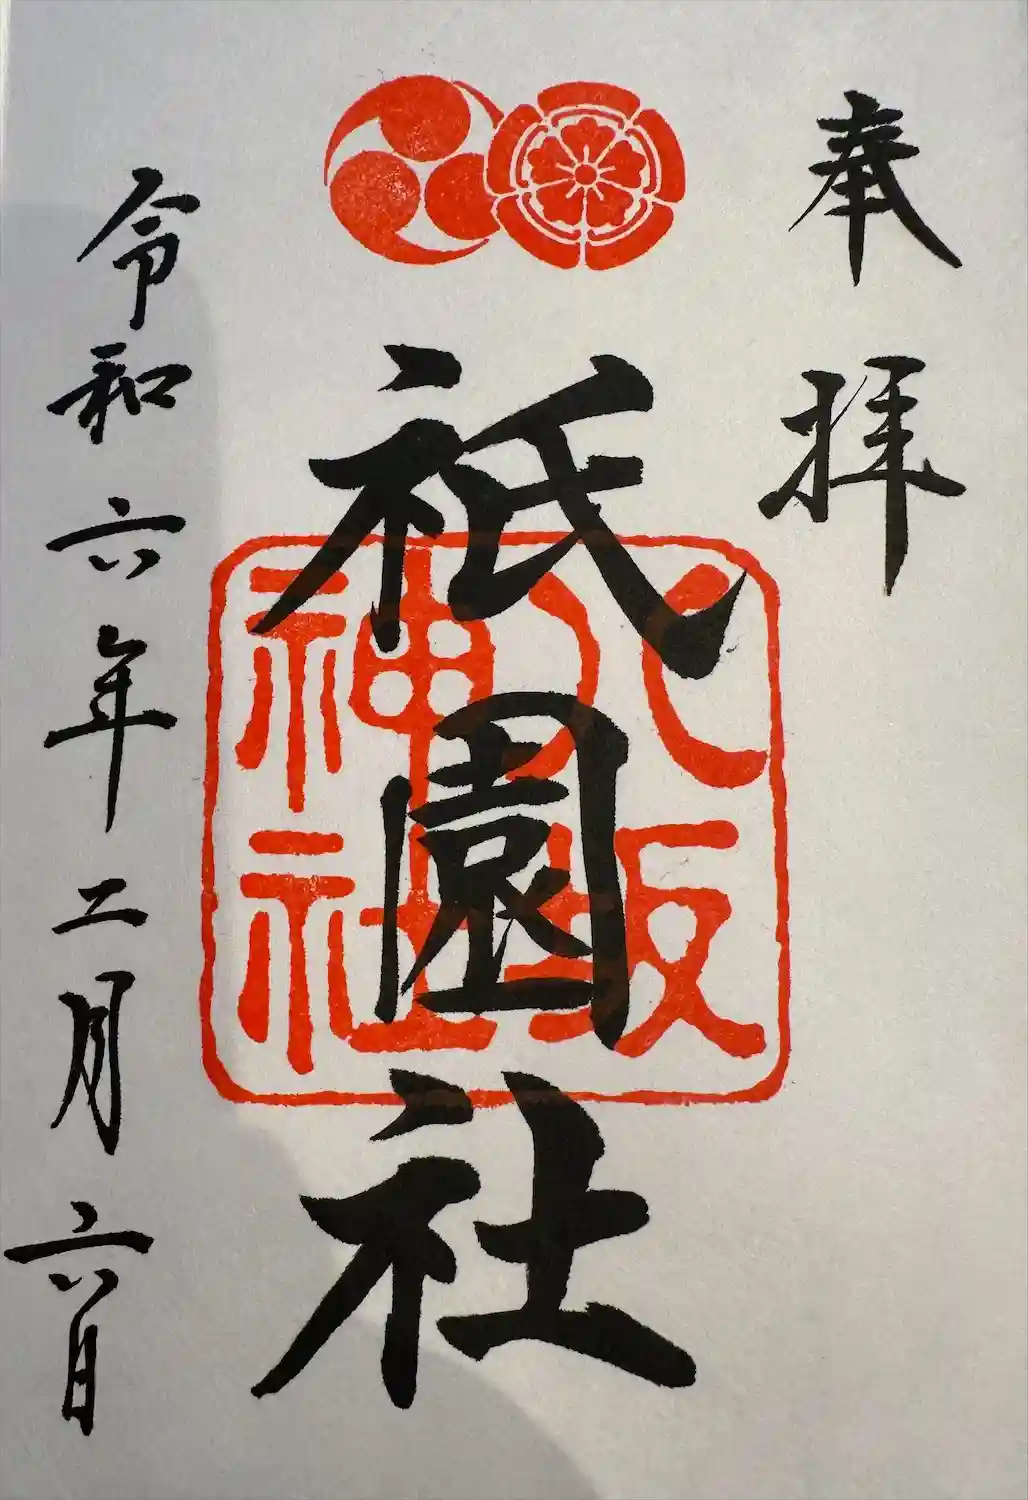 奉拝
祇園社
八坂神社
令和六年二月六日